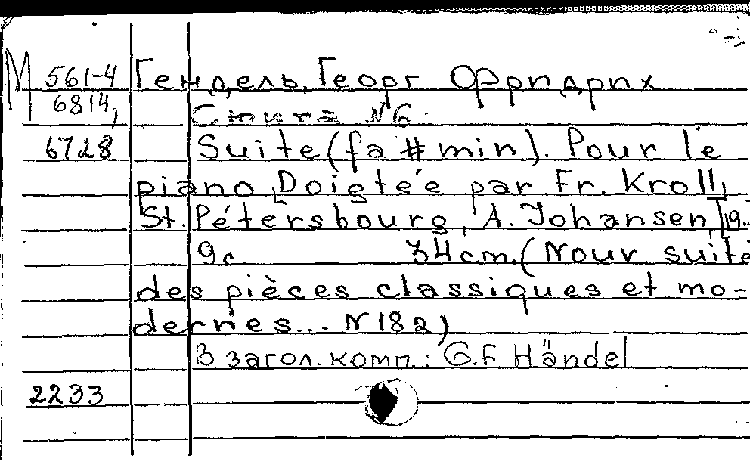 М 561-4 Гендель, Георг Фридрих
6814, Сюита №6.
6728 Suite (fa # min). Pour le
piano. Doigteé par Fr. Kroll,
St. Pétersbourg, A. Johansen, [19..
9с 34cm. (Nouv suite
des pièces classiques et mo-
dernes... N 182)
В загол. комп.: G.F Händel
2233